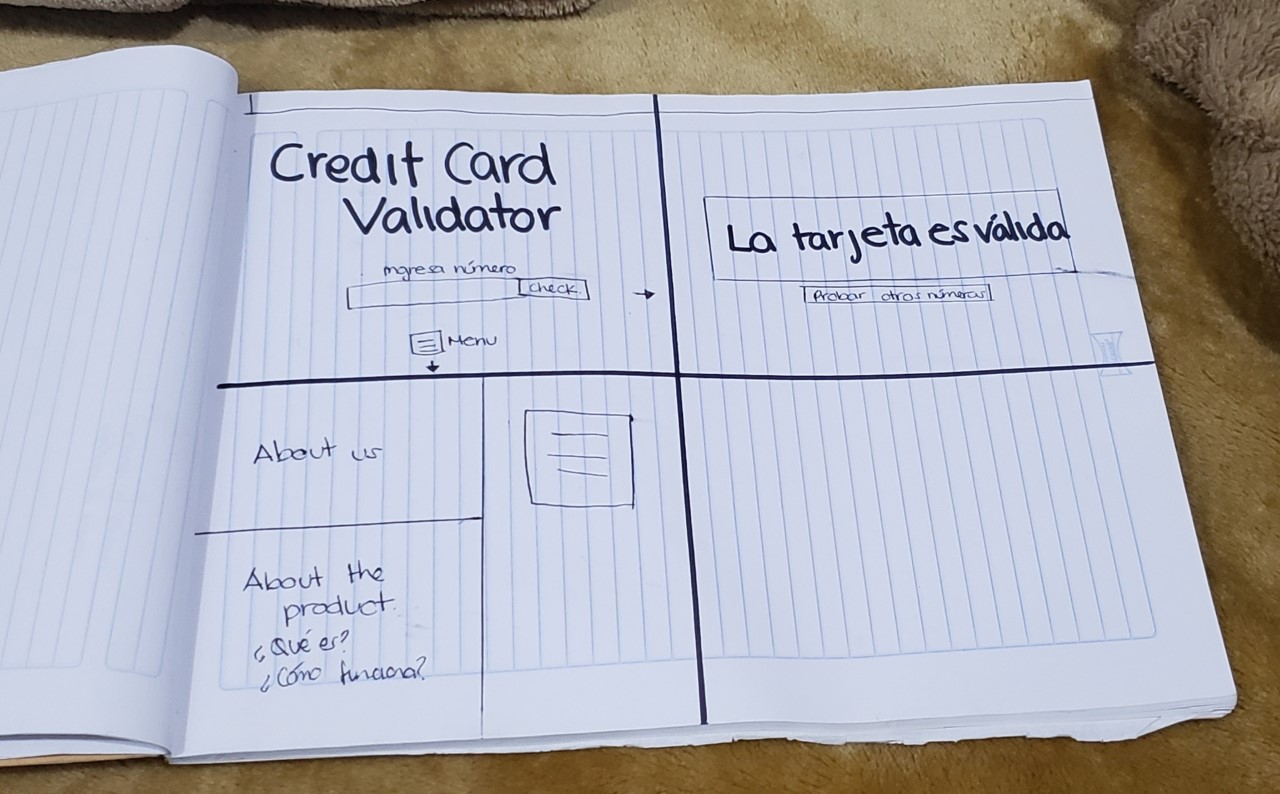 Credit Card
Validator
Ingresa número
check.
Menu
La tarjeta es válida
Probar otros números
About us
About the
product.
¿Qué es?
¿Cómo funciona?